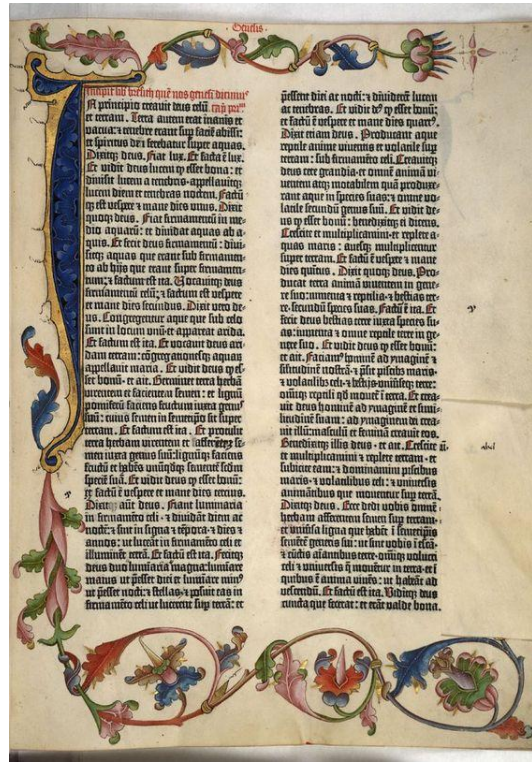 Genesis
Incipit liber bresich quē nos genesim dicimus
In principio creavit deus celū cap̄ prī.
et terram. Terra autem erat inanis et
vacua: et tenebre erant sup faciē abissi:
et spiritus dñi ferebatur super aquas.
Dixitq; deus. Fiat lux. Et facta ē lux.
Et vidit deus lucem q esset bona: et
divisit lucem a tenebris·appellavitq;
lucem diem et tenebras noctem. Factūq;
est vespere et mane dies unus. Dixit
quoq; deus. Fiat firmamentū in medio
aquarū: et dividat aquas ab aquis.
Et fecit deus firmamentū: divisitq;
aquas que erant sub firmamento
ab hijs que erant super firmamentum:
et factum est ita. Vocavitq; deus
firmamentum celū: et factum est vespere
et mane dies secundus. Dixit vero deus.
Congregentur aque que sub celo
sunt in locum unū et appareat arida.
Et factum est ita. Et vocavit deus aridam
terram: cōgregationesq; aquarum
appellavit maria. Et vidit deus q esset
bonū·et ait. Germinet terra herbā
virentem et facientem semen: et lignū
pomiferū faciens fructum iuxta genus
suū: cuius semen in semetipso sit super
terram. Et factum est ita. Et protulit
terra herbam virentem et facientem semen
iuxta genus suū: lignūq; faciens
fructū et habens unūqdq; semente scdm
speciem suā. Et vidit deus q esset bonū:
et factū est vespere et mane dies tercius.
Dixitq; autē deus. Fiant luminaria
in firmamēto celi·et dividāt diem ac
noctē: et sint in signa et tēpora·et dies et
annos: ut luceāt in firmamēto celi et
illuminēt terrā. Et factū est ita. Fecitq;
deus duo luminaria magna: luminare
maius ut pesset diei et luminare min9
ut pesset nocti: et stellas·et posuit eas in
firmamēto celi ut lucerent sup terrā: et
pessent diei ac nocti: et dividerēt lucem
ac tenebras. Et vidit de9 q esset bonū:
et factū ē vespere et mane dies quart9.
Dixit etiam deus. Producant aque
reptile anime viventis et volatile sup
terram: sub firmamēto celi. Creavitq;
deus cete grandia·et omnē animā viventem
atq; motabilem quā produxerant
aque in species suas: et omne volatile
secundū genus suū. Et vidit deus
q esset bonū: benedixitq; ei dicens.
Crescite et multiplicamini·et replete aquas
maris: avesq; multiplicentur
super terram. Et factū ē vespere et mane
dies quītus. Dixit quoq; deus. Producat
terra animā viventem in genere
suo: iumenta et reptilia·et bestias terre
secundū species suas. Factūq; ē ita. Et
fecit deus bestias terre iuxta species suas:
iumenta et omne reptile terre in genere
suo. Et vidit deus q esset bonū:
et ait. Faciam9 hominē ad ymaginē et
similitudinē nostrā·et presit piscibz maris·
et volatilibz celi·et bestijs universeq; terre:
omniq; reptili qd movet̄ i terra. Et creavit
deus hominē ad ymaginē et similitudinē
suam: ad ymaginem dei creavit
illū: masculū et feminā creavit eos.
Benedixitq; illis deus·et ait. Crescite
et multiplicamini et replete terram·et
subicite eam: et dominamini piscibus
maris·et volatilibus celi: et universis
animātibus que moventur sup terrā.
Dixitq; deus. Ecce dedi vobis omnē
herbam afferentem semen sup terram·
et universa ligna que habēt i semetipsis
sementē generis sui: ut sint vobis i escā·
et cūctis aīantibus terre·omniq; volucri
celi et universis q moventur in terra·et i
quibus ē anima vivēs: ut habeāt ad
vescendū. Et factū est ita. Viditq; deus
cuncta que fecerat: et erāt valde bona.